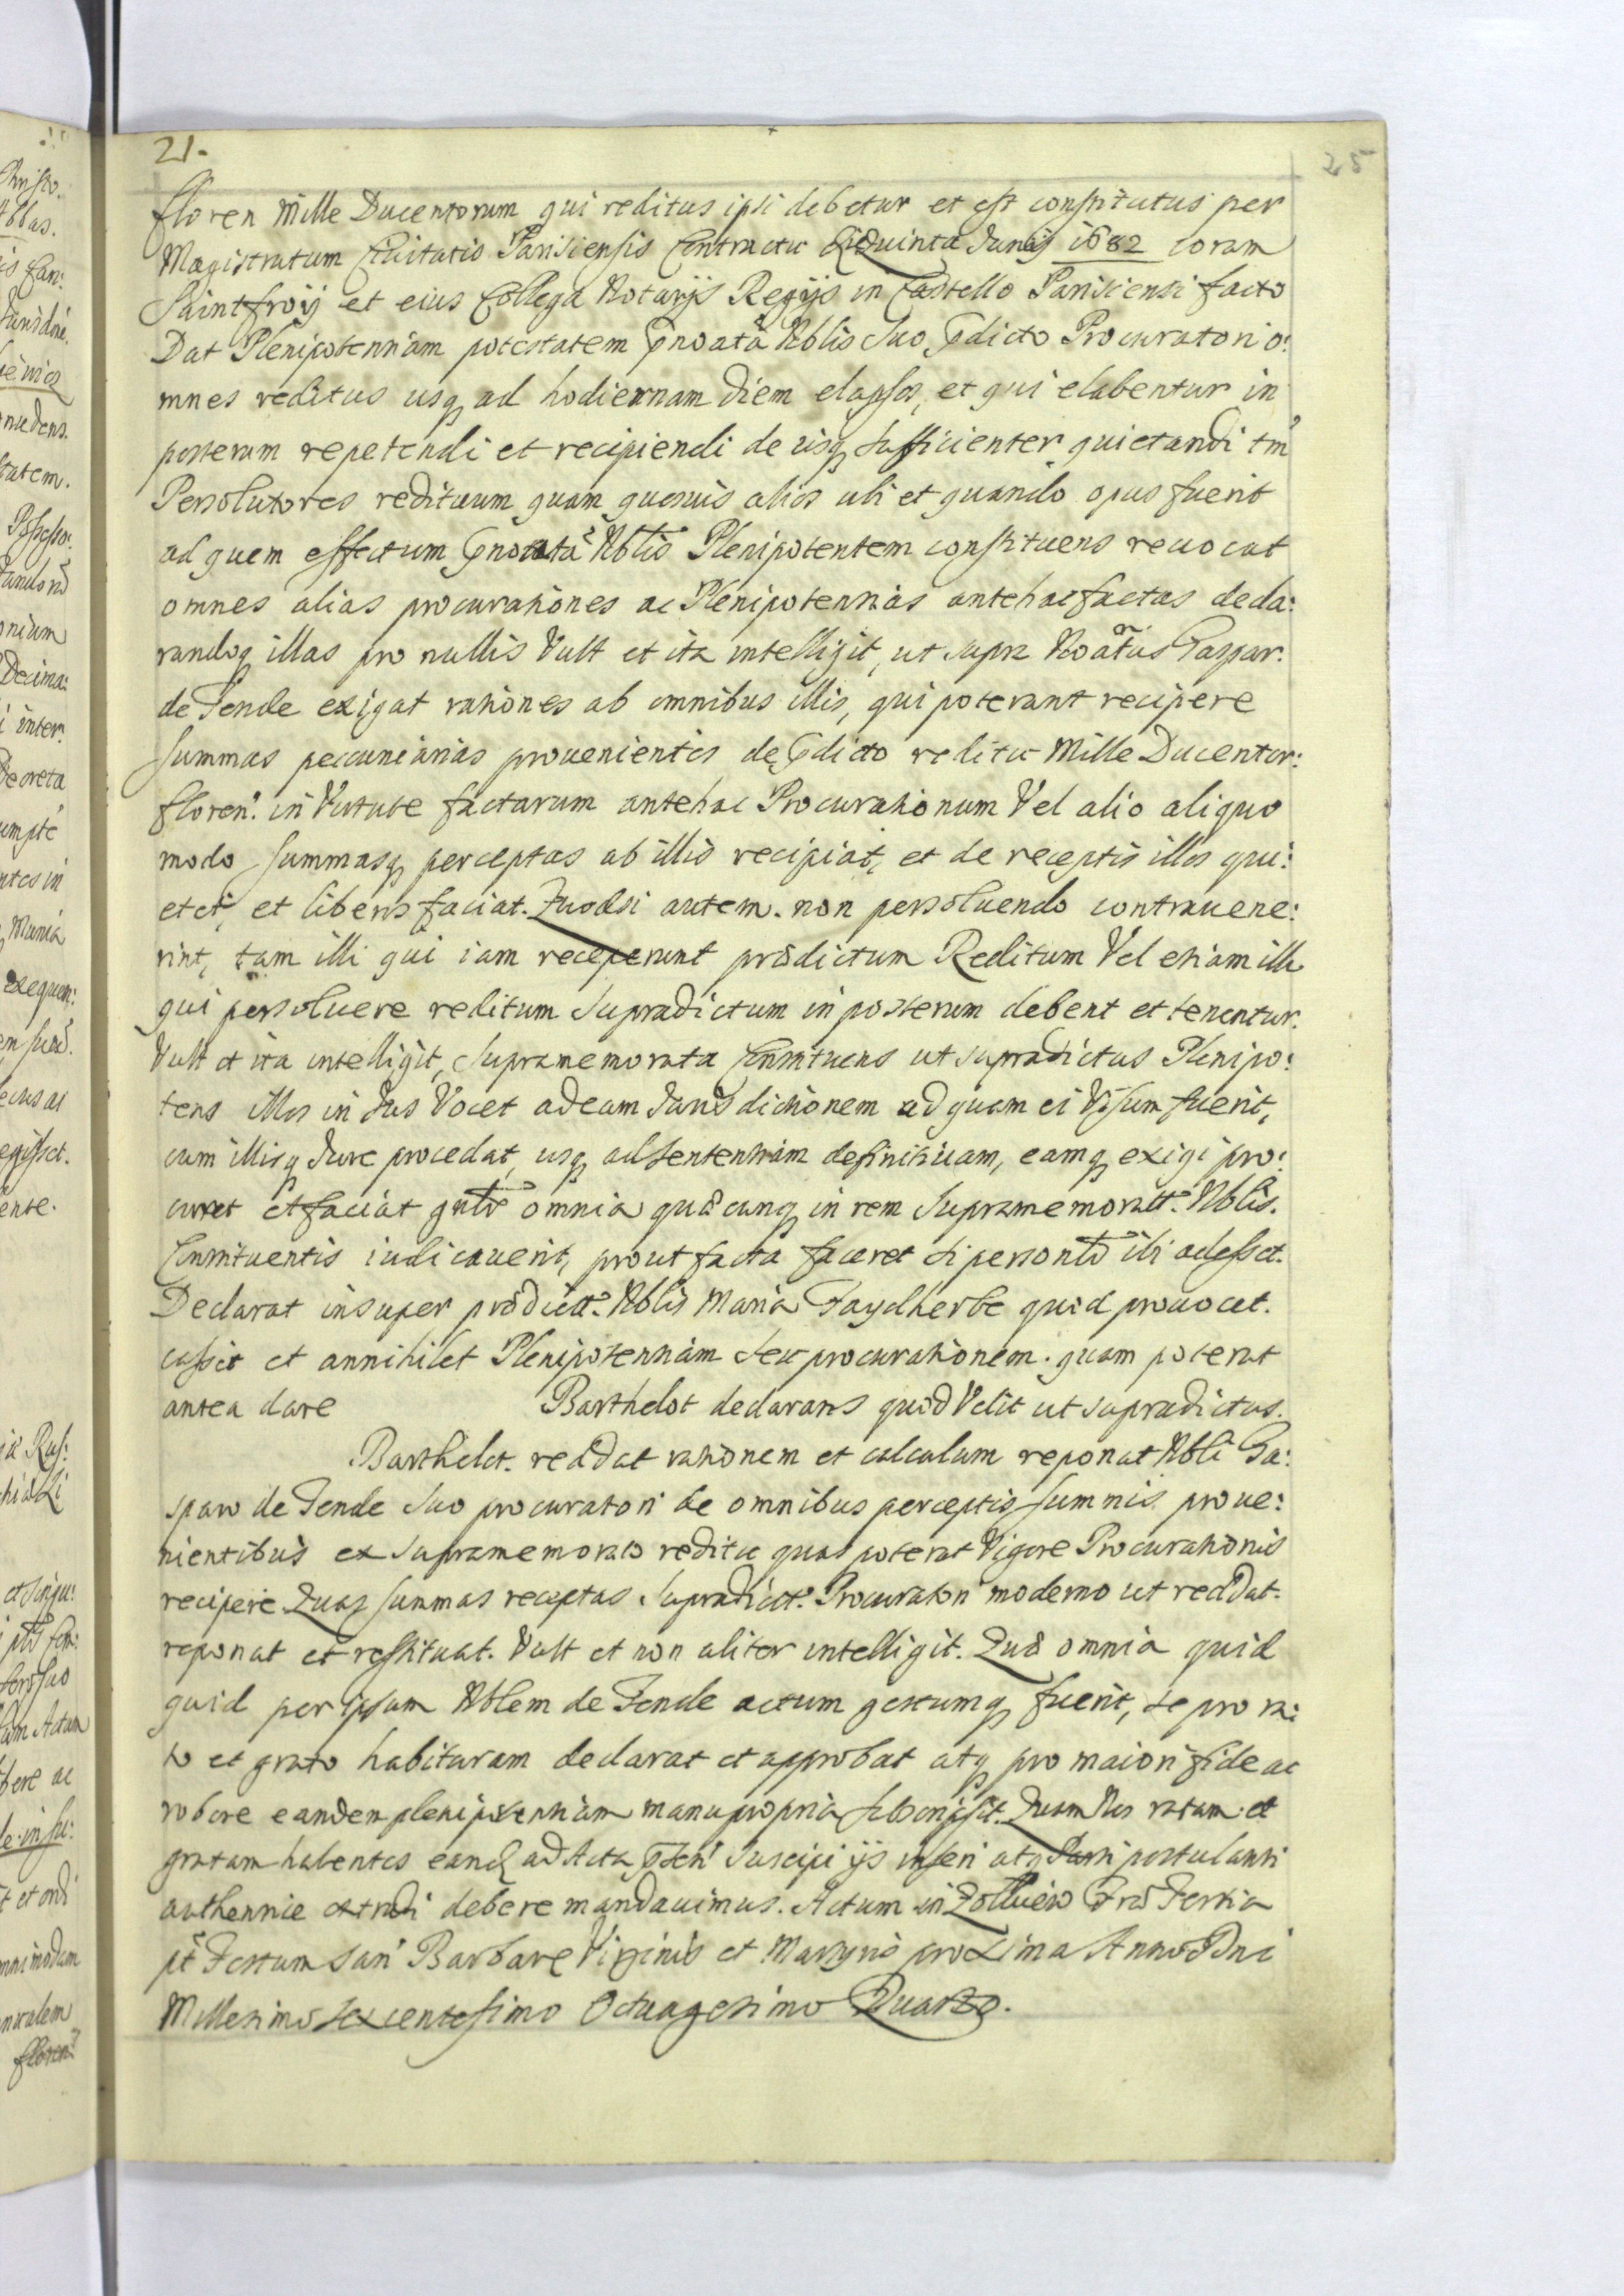 21.
25
floren Mille Ducentorum qui reditus ipsi debetur et est constitutus per
Magistratum Ciuitatis Parisiensis Contractu Quinta Junij 1682 coram
Saintfroij et eius Collega Notarijs Regijs in Castello Parisiensi facto
Dat Plenipotentiam potestatem Nblis suo dicto Procuratori o:
mnes reditus usq ad hodiernam diem elapsos, et qui elabentur in
posterum repetendi et recipiendi de iisq sufficienter quietandi tm
Persolutores redituum quam quosuis alios ubi et quando opus fuerit
ad quem effectum Nblis Plenipotentem constituens reuocat
omnes alias procurationes ac Plenipotentias antehac factas decla:
randoq illas pro nullis Vult et ita intelligit, ut supra Noatus Gaspar.
de Tende exigat rationes ab omnibus illis, qui poterant recipere
summas peccuniarias prouenientes de dicto reditu Mille Ducentor:
floren: in Virtute factarum antehac Procurationum Vel alio aliquo
modo summasq perceptas ab illis recipiat, et de receptis illos qui:
etet, et liberos faciat. Quodsi autem. non persoluendo contrauene:
rint, tam illi qui iam receperunt prædictum Reditum Vel etiam illi
qui persoluere reditum supradictum in posterum debent et tenentur.
Vult et ita intelligit, supramemorata Constituens ut supradictus Plenipo:
tens illos in Jus Vocet ad eam Jurisdictionem ad quam ei Visum fuerit,
cum illisq Jure procedat, usq ad sententiam definitiuam, eamq exigi pro:
curet et faciat omnia quæcunq in rem supramemoratæ Nblis.
Constituentis iudicauerit, prout facta faceret si ibi adesset.
Declarat insuper prædict. Nblis Maria Faydherbe quod prouocet.
casset et annihilet Plenipotentiam seu procurationem. quam poterat
antea dare Barthelot declarans quod Velit ut supradictus.
Barthelot. reddat rationem et calculum reponat Nbli Ga:
sparo de Tende suo procuratori de omnibus perceptis summis proue:
nientibus ex supramemorato reditu quas poterat Vigore Procurationis
recipere Quas summas receptas supradict. Procuratori moderno ut reddat.
reponat et restituat. Vult et non aliter intelligit. Quæ omnia quid
quid per ipsum Nblem de Tende actum gestumq fuerit, se pro ra:
to et grato habituram declarat et approbat atq pro maiori fide ac
robore eandem plenipotentiam manu propria subscripsit. Quam Nos ratam et
gratam habentes ad Acta suscipi ijs inseri atq Parti postulanti
authentice extradi debere mandauimus. Actum in Zolkiew Tertia
Festum San Barbaræ Virginis et Martyris proxima Anno Dni
Millesimo sexcentesimo Octuagesimo Quarto.